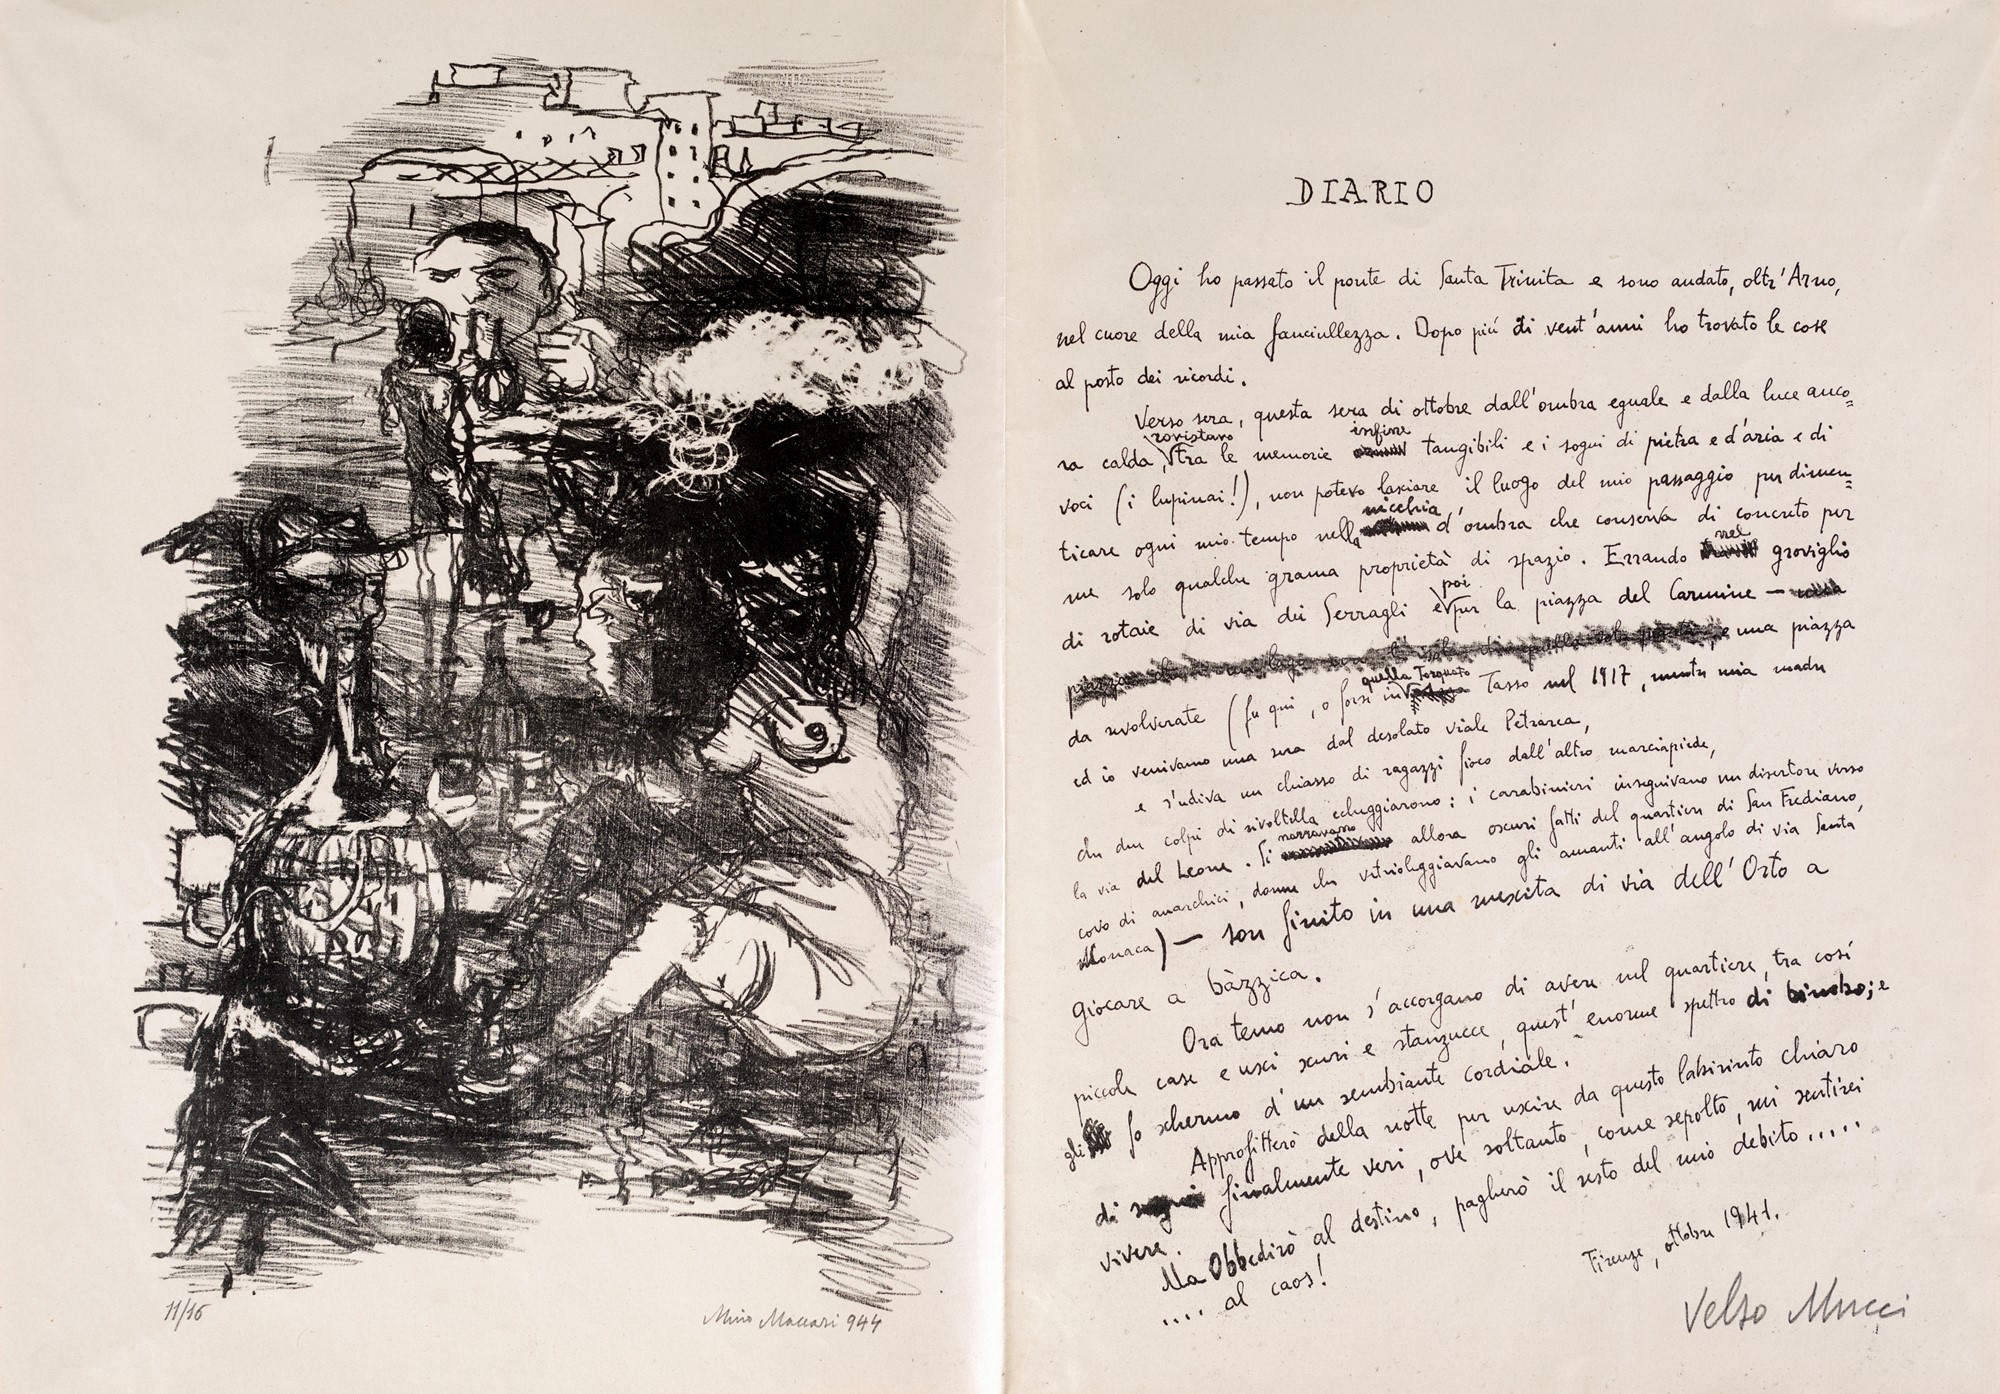 11/16
Mino Maccari 944
DIARIO
Oggi ho passato il ponte di Santa Trinita e sono andato, oltr'Arno,
nel cuore della mia fanciullezza. Dopo più di vent'anni ho trovato le cose
al posto dei ricordi.
Verso sera, questa sera di ottobre dall'ombra eguale e dalla luce anco=
ra calda, rovistavo tra le memorie infine tangibili e i sogni di pietra e d'aria e di
voci (i lupinai!), non potevo lasciare il luogo del mio passaggio per dimen=
ticare ogni mio tempo nella nicchia d'ombra che conserva di concreto per
me solo qualche grama proprietà di spazio. Errando nel groviglio
di rotaie di via dei Serragli e poi per la piazza del Carmine —
e una piazza
da revolverate (fu qui, o forse in quella Torquato Tasso nel 1917, mentre mia madre
ed io venivamo una sera dal desolato viale Petrarca,
e s'udiva un chiasso di ragazzi fioco dall'altro marciapiede,
che due colpi di rivoltella echeggiarono: i carabinieri inseguivano un disertore verso
la via del Leone. Si narravano allora oscuri fatti del quartiere di San Frediano,
covo di anarchici, donne che vetrioleggiavano gli amanti all'angolo di via Santa
Monaca) — son finito in una mescita di via dell'Orto a
giocare a bàzzica.
Ora temo non s'accorgano di avere nel quartiere, tra così
piccole case e usci scuri e stanzucce, quest'enorme spettro di bimbo; e
gli fo schermo d'un sembiante cordiale.
Approfitterò della notte per uscire da questo labirinto chiaro
di sogni finalmente veri, ove soltanto, come sepolto, mi sentirei
vivere.
Ma Obbedirò al destino, pagherò il resto del mio debito.....
.... al caos!
Firenze, ottobre 1941.
Velso Mucci